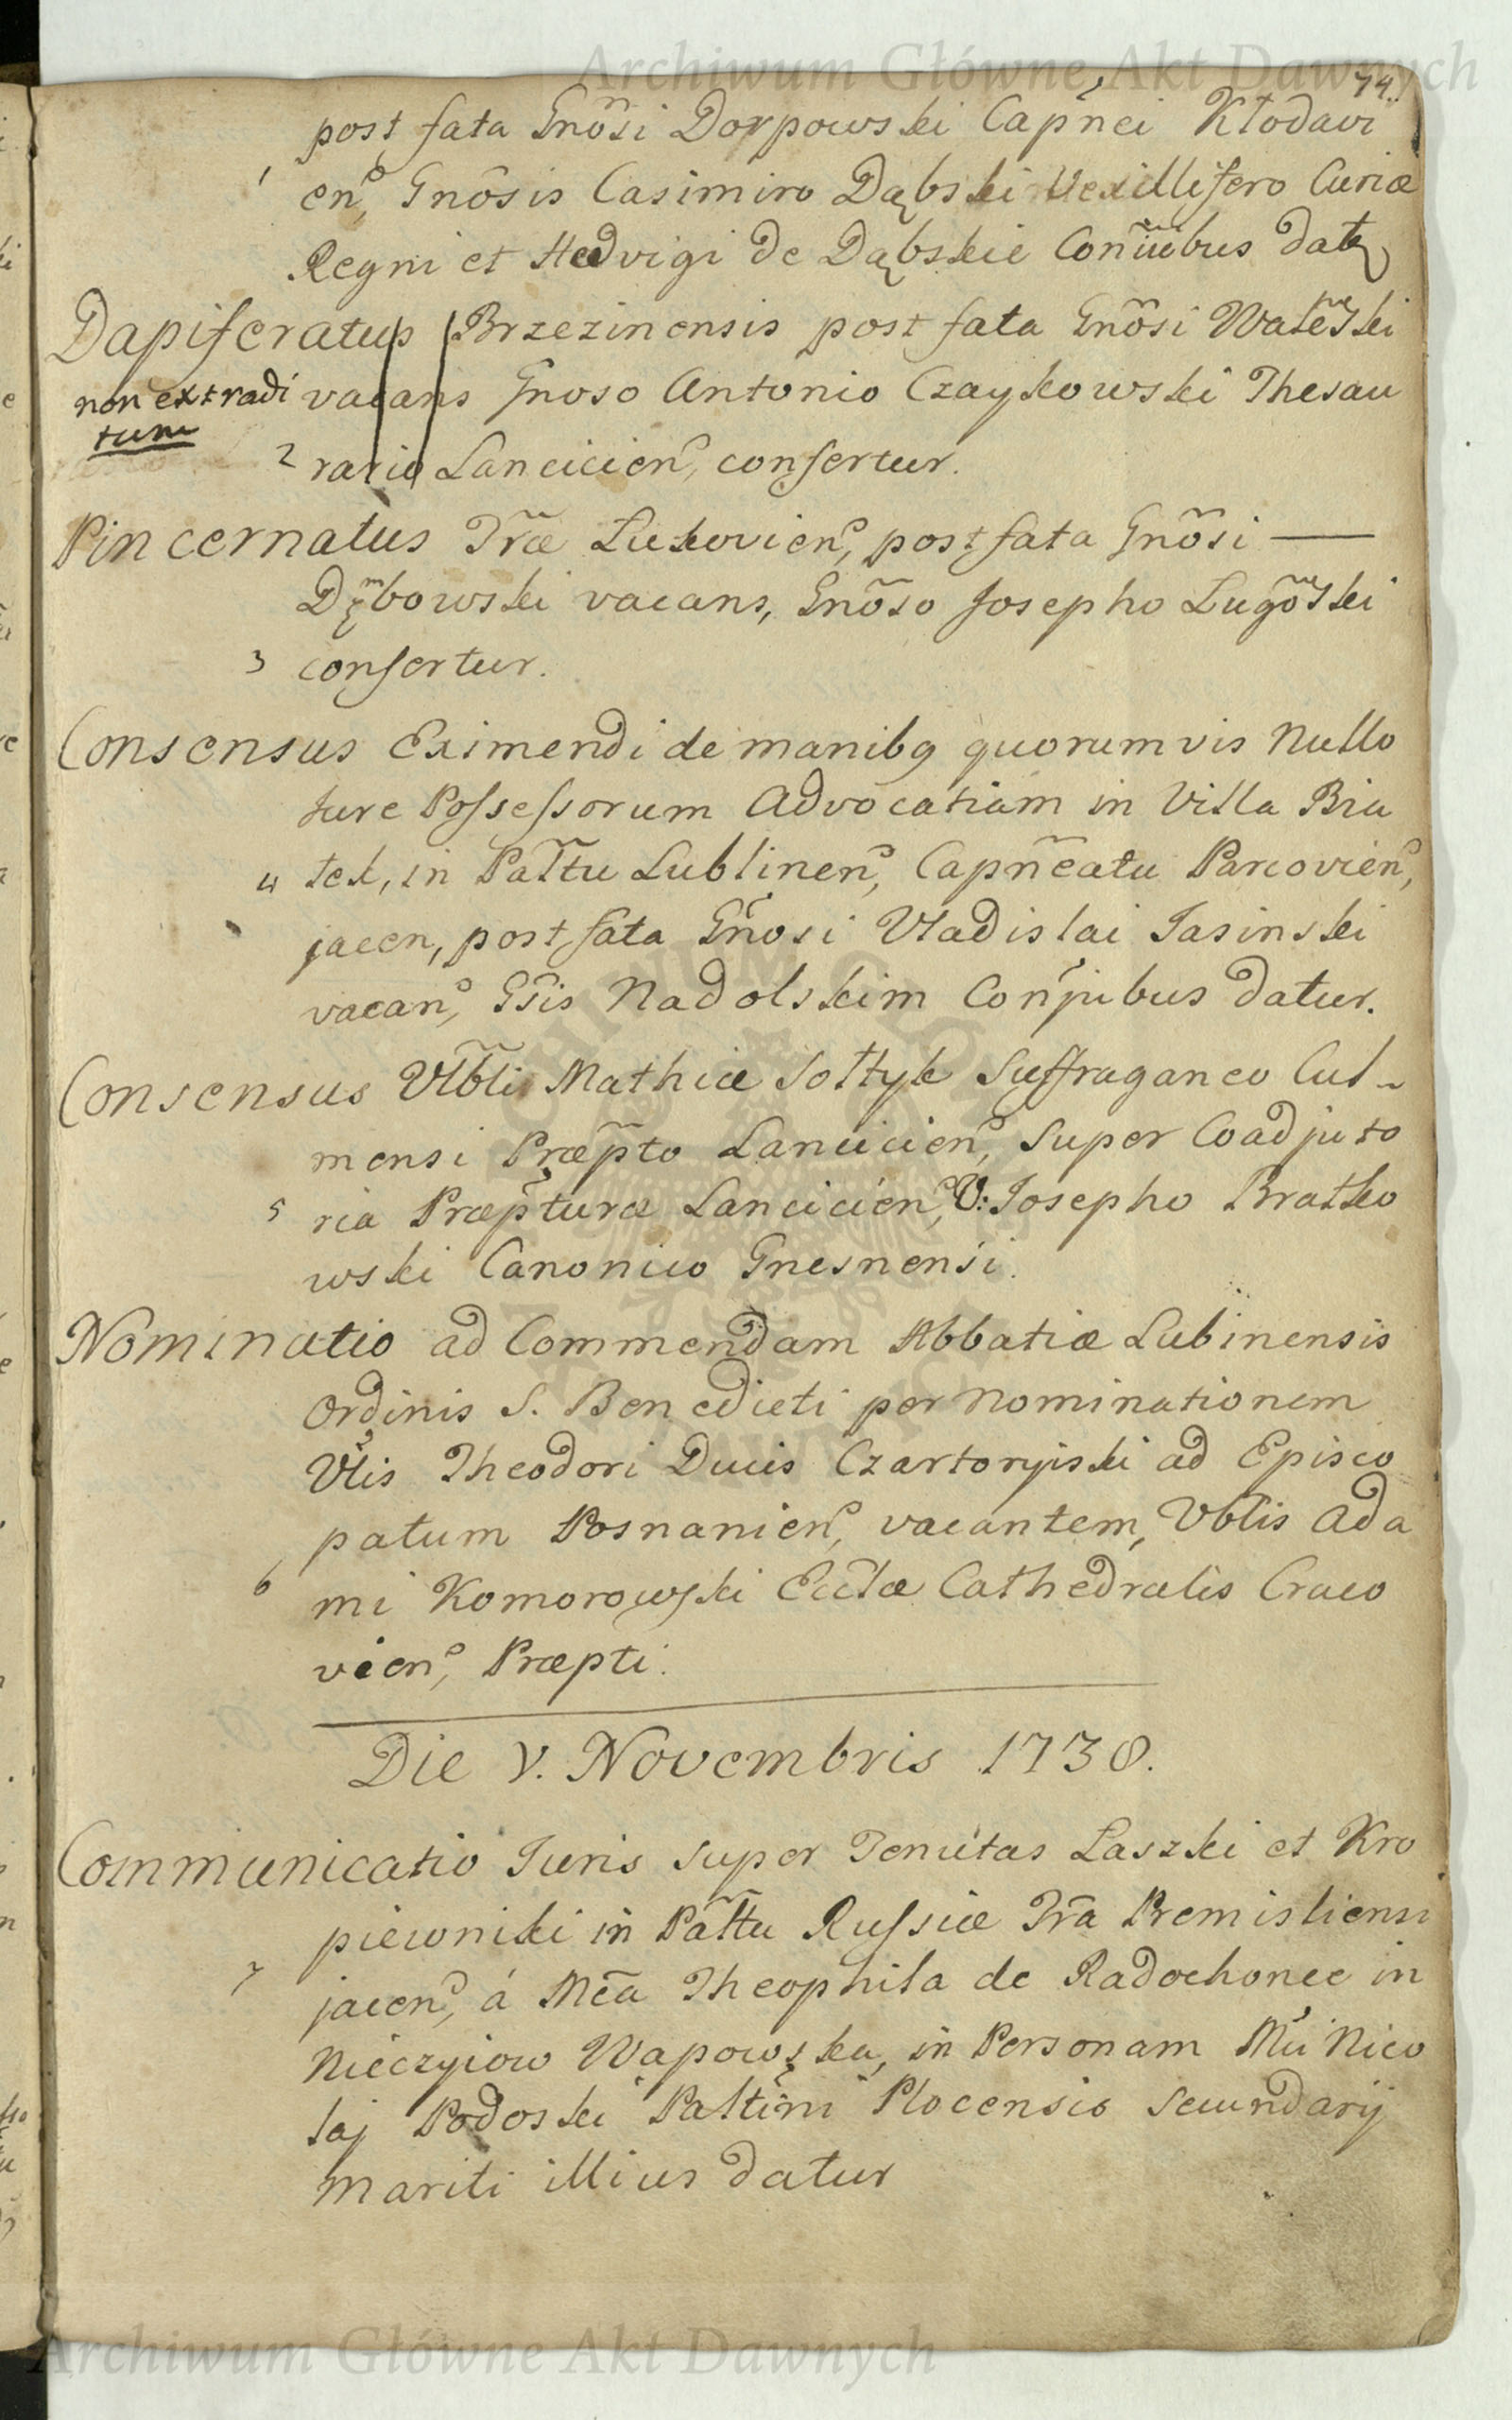 Archiwum Główne Akt Dawnych
74.
post fata Gnõsi Dorpowski Capñei Kłodavi
1 enˢ, Gnõsis Casimiro Dąbski Vexillifero Curiæ
Regni et Hedvigi de Dąbskie Coñiubus datʒ
Dapiferatus Brzezinensis post fata Gnõsi Waleski
non extradi vacans Gnoso Antonio Czaykowski Thesau
tum
2 rario Lancicienˢ, confertur.
Pincernatus Tr̃æ Lukovienˢ, post fata Gnõsi —
Dębowski vacans, Gnõso Josepho Lugoski
3 confertur.
Consensus Eximendi de manibꝯ quorumvis Nullo
Iure Possessorum Advocatiam in Villa Biu
4 tek, in Pal̃tu Lublinenˢ, Capñeatu Parcovienˢ,
jacen, post fata Gñosi Vladislai Jasinski
vacanˢ, Gs̃is Nadolskim Conj̃ubus datur.
Consensus Vl̃bli Mathiæ Sołtyk Suffraganeo Cul-
mensi Præp̃to Lancicienˢ, super Coadjuto
5 ria Præp̃turæ Lancicienˢ, V: Josepho Bratko
wski Canonico Gnesnensi.
Nominatio ad Commendam Abbatiæ Lubinensis
Ordinis S. Benedicti per nominationem
Vl̃is Theodori Ducis Czartoryiski ad Episco
patum Posnanienˢ, vacantem, Vblis Ada
6 mi Komorowski Ecclæ Cathedralis Craco
vienˢ, Præpti.
Die V. Novembris 1738.
Communicatio Iuris super Tenutas Laszki et Kro
piewniki in Pal̃tu Russiæ Tr̃a Premisliensi
7 jacenˢ, á Mc̃a Theophila de Radochonce in
Nieczyiow Wapowska, in Personam Mc̃i Nico
laj Podoski Pal̃tini Plocensis secundarij
mariti illius datur
Archiwum Główne Akt Dawnych